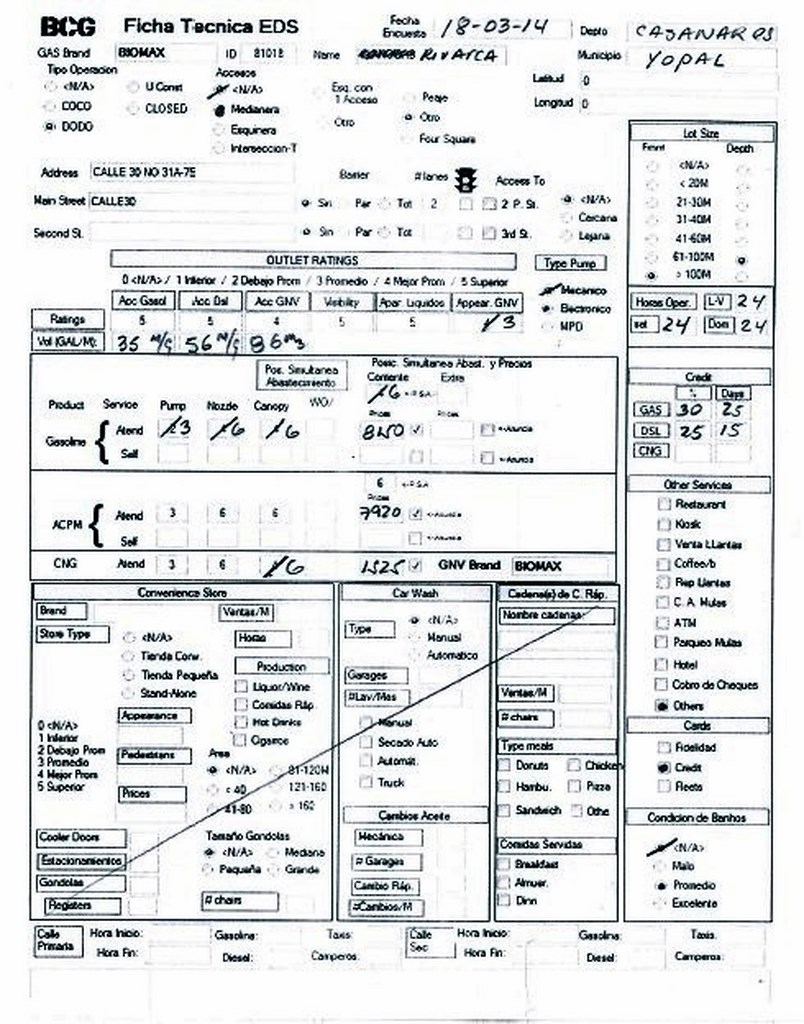 BCG Ficha Tecnica EDS Fecha Encuesta 18-03-14 Depto CASANAR OS
GAS Brand BIOMAX ID 81018 Name RIVARCA Municipio YOPAL
Tipo Operacion Accesos Latitud 0
<N/A> U Const <N/A> Esq. con 1 Acceso Peaje Longitud 0
COCO CLOSED Medianera Otro Otro
DODO Esquinera Four Square
Interseccion-T
Address CALLE 30 NO 31A-75 Barrier # lanes Access To
Main Street CALLE30 Sin Par Tot 2 2 P. St. <N/A>
Cercana
Second St. Sin Par Tot 3rd St. Lejana
Lot Size
Front Depth
<N/A>
< 20M
21-30M
31-40M
41-60M
61-100M
> 100M
OUTLET RATINGS Type Pump
0 <N/A> / 1 Inferior / 2 Debajo Prom / 3 Promedio / 4 Mejor Prom / 5 Superior Mecanico
Acc Gasol Acc Dsl Acc GNV Visibility Apar. Liquidos Appear. GNV Electronico
Ratings 5 5 4 5 5 3 MPD
Vol (GAL/M): 35 M/G 56 M/G 86 M3
Horas Oper. L-V 24
sab 24 Dom 24
Pos. Simultanea Abastecimiento Posic. Simultanea Abast. y Precios
Corriente Extra
6 <-P.S.A
Product Service Pump Nozzle Canopy WO/ Prices Prices
Gasoline Atend 3 6 6 8150 <-Anuncia
Self <-Anuncia
6 <-P.S.A
Prices
ACPM Atend 3 6 6 7920 <-Anuncia
Self <-Anuncia
CNG Atend 3 6 6 1525 GNV Brand BIOMAX
Credit
% Days
GAS 30 25
DSL 25 15
CNG
Other Services
Restaurant
Kiosk
Venta LLantas
Coffee/b
Rep Llantas
C. A. Mulas
ATM
Parqueo Mulas
Hotel
Cobro de Cheques
Others
Cards
Fidelidad
Credit
Fleets
Condicion de Banhos
<N/A>
Malo
Promedio
Excelente
Convenience Store
Brand Ventas/M
Store Type <N/A> Horas
Tienda Conv. Production
Tienda Pequeña Liquor/Wine
Stand-Alone Comidas Ráp.
Appearance Hot Drinks
Cigarros
0 <N/A>
1 Inferior
2 Debajo Prom
3 Promedio
4 Mejor Prom
5 Superior
Pedestrans Area
<N/A> 81-120M
< 40 121-160
Prices 41-80 > 160
Cooler Doors Tamaño Gondolas
Estacionamientos <N/A> Mediana
Gondolas Pequeña Grande
Registers # chairs
Car Wash
Type <N/A>
Manual
Automatico
Garages
#Lav/Mes
Manual
Secado Auto
Automát.
Truck
Cambios Aceite
Mecánica
# Garages
Cambio Ráp.
#Cambios/M
Cadena(s) de C. Ráp.
Nombre cadenas:
Ventas/M
# chairs
Type meals
Donuts Chicken
Hambu. Pizza
Sandwich Othe
Comidas Servidas
Breakfast
Almuer.
Dinn
Calle Primaria Hora Inicio: Gasolina: Taxis: Calle Sec Hora Inicio: Gasolina: Taxis:
Hora Fin: Diesel: Camperos: Hora Fin: Diesel: Camperos: